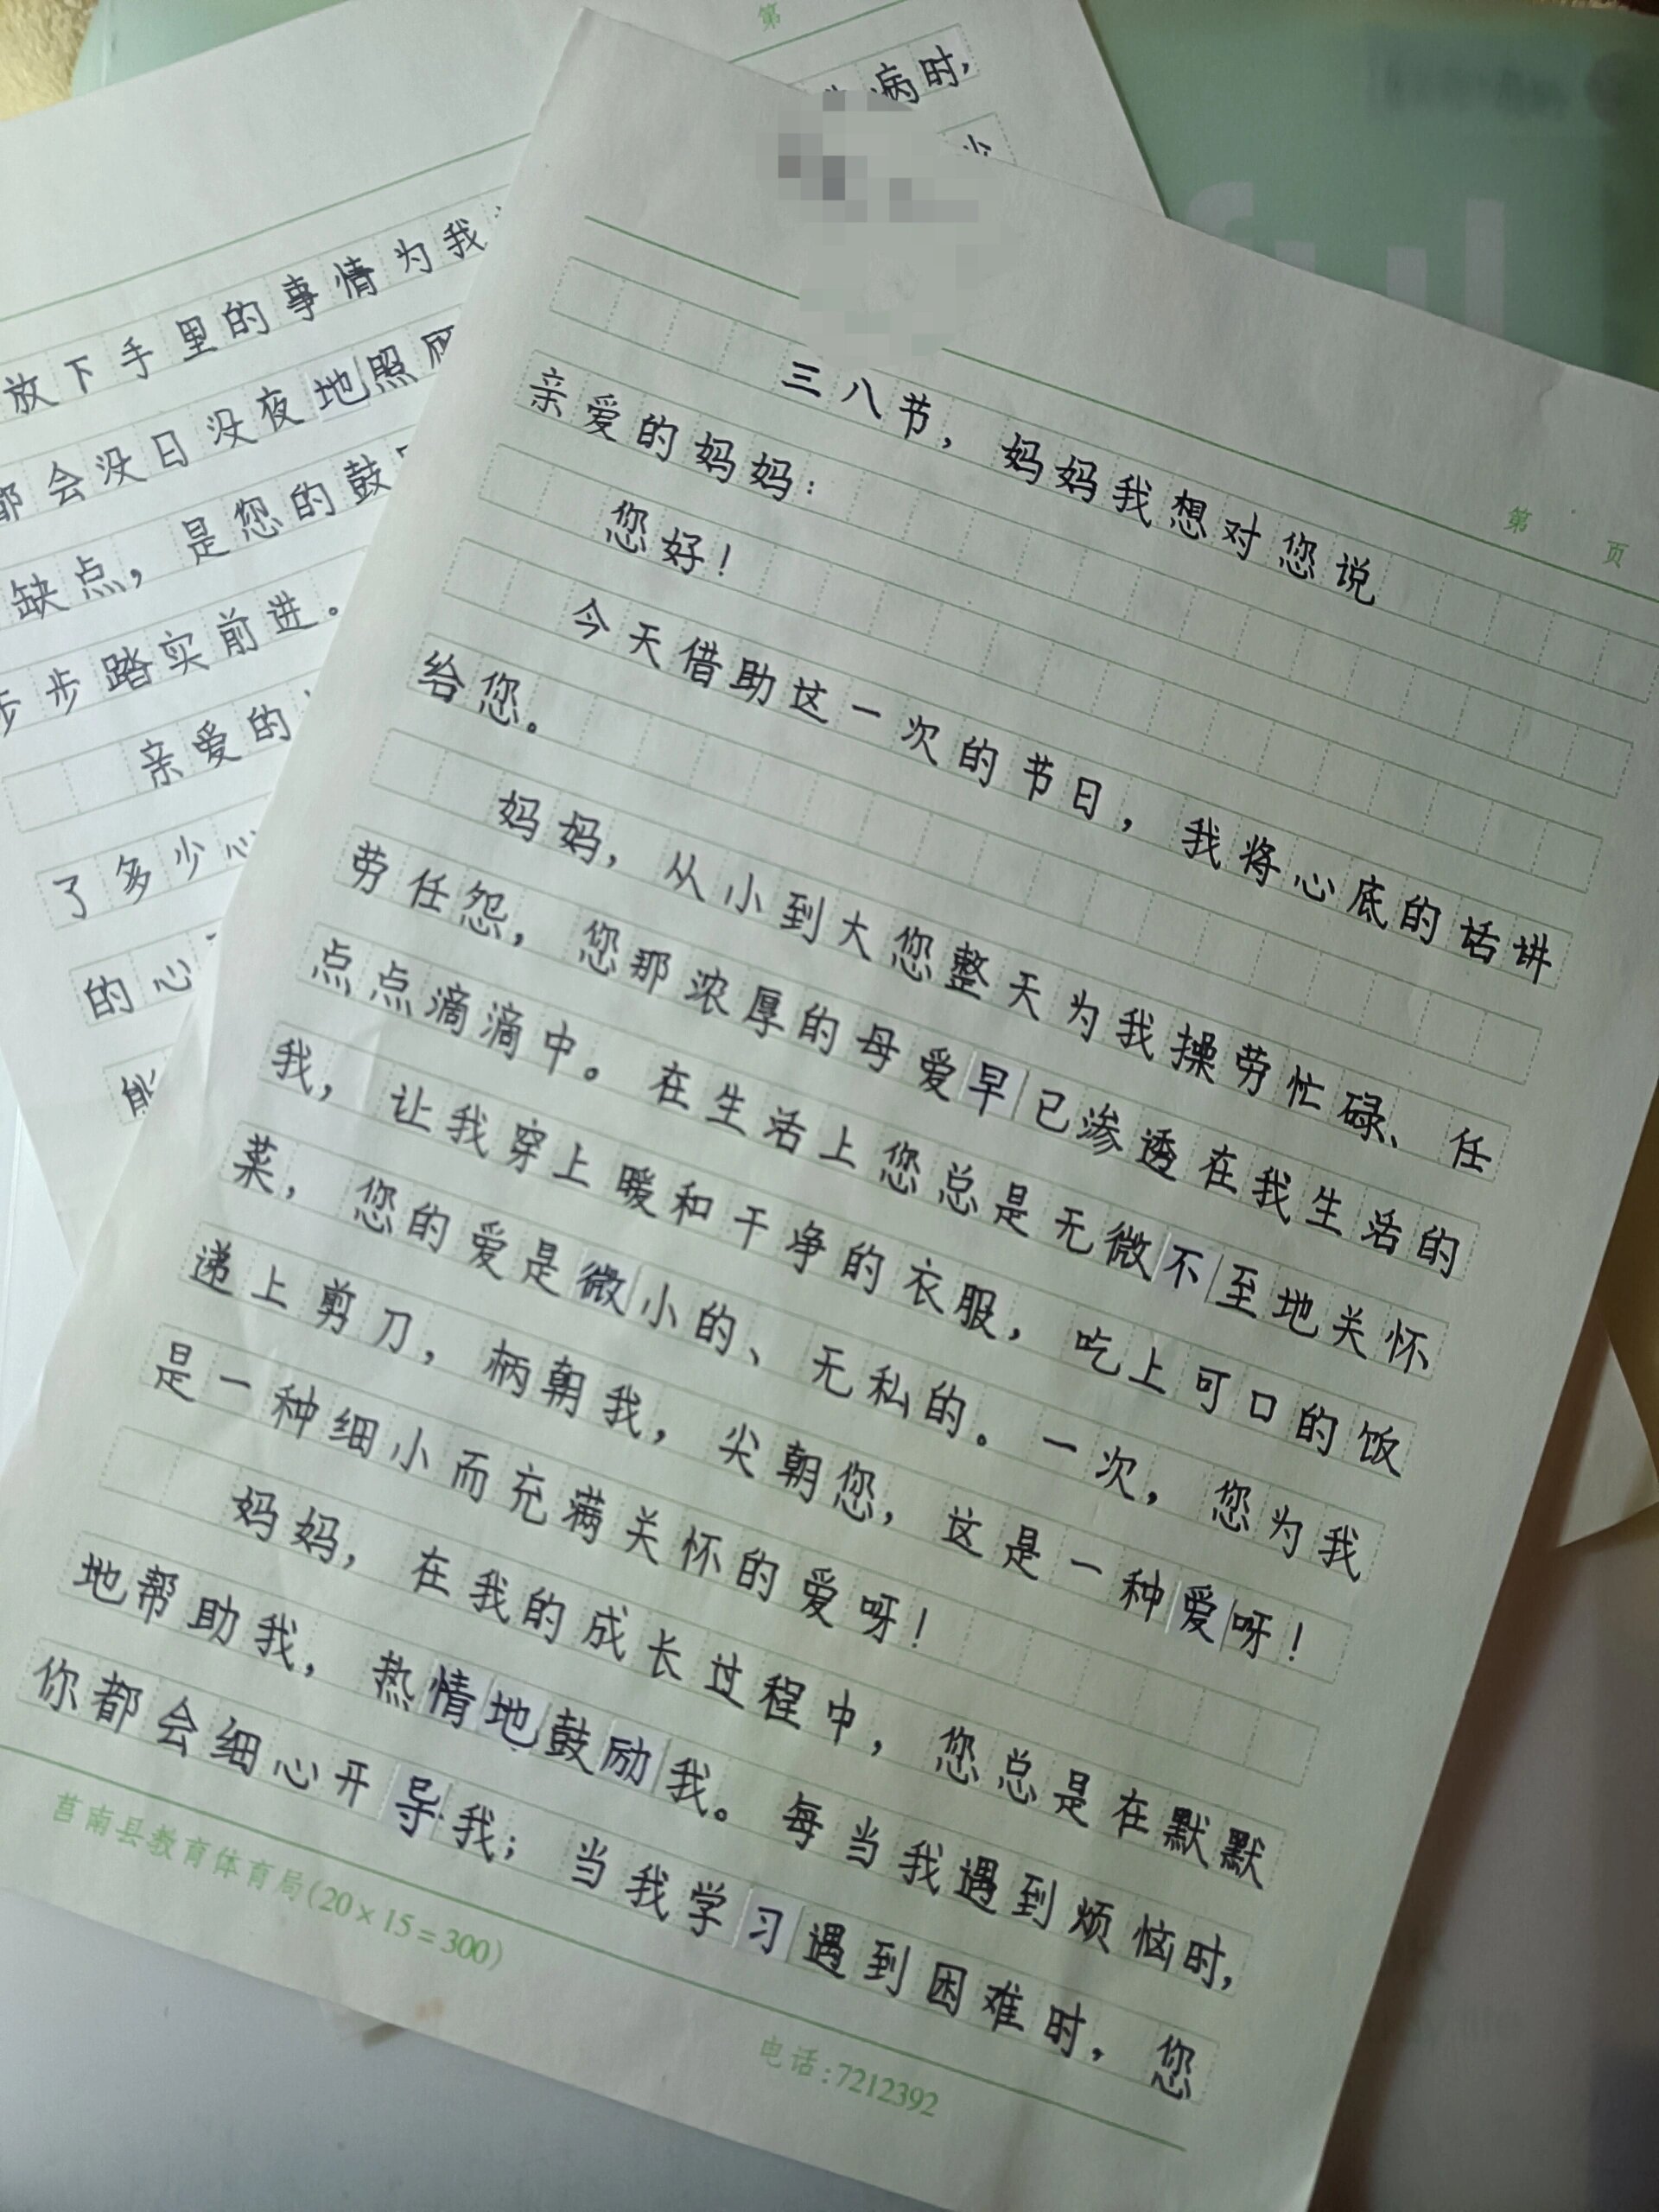 第 页
三八节，妈妈我想对您说
亲爱的妈妈：
您好！
今天借助这一次的节日，我将心底的话讲
给您。
妈妈，从小到大您整天为我操劳忙碌、任
劳任怨，您那浓厚的母爱早已渗透在我生活的
点点滴滴中。在生活上您总是无微不至地关怀
我，让我穿上暖和干净的衣服，吃上可口的饭
菜，您的爱是微小的、无私的。一次，您为我
递上剪刀，柄朝我，尖朝您，这是一种爱呀！
是一种细小而充满关怀的爱呀！
妈妈，在我的成长过程中，您总是在默默
地帮助我，热情地鼓励我。每当我遇到烦恼时，
你都会细心开导我；当我学习遇到困难时，您
莒南县教育体育局(20×15=300)
电话:7212392
第
病时，
放下手里的事情为我
都会没日没夜地照顾
缺点，是您的鼓
步步踏实前进。
亲爱的
了多少心
的心
能
ful